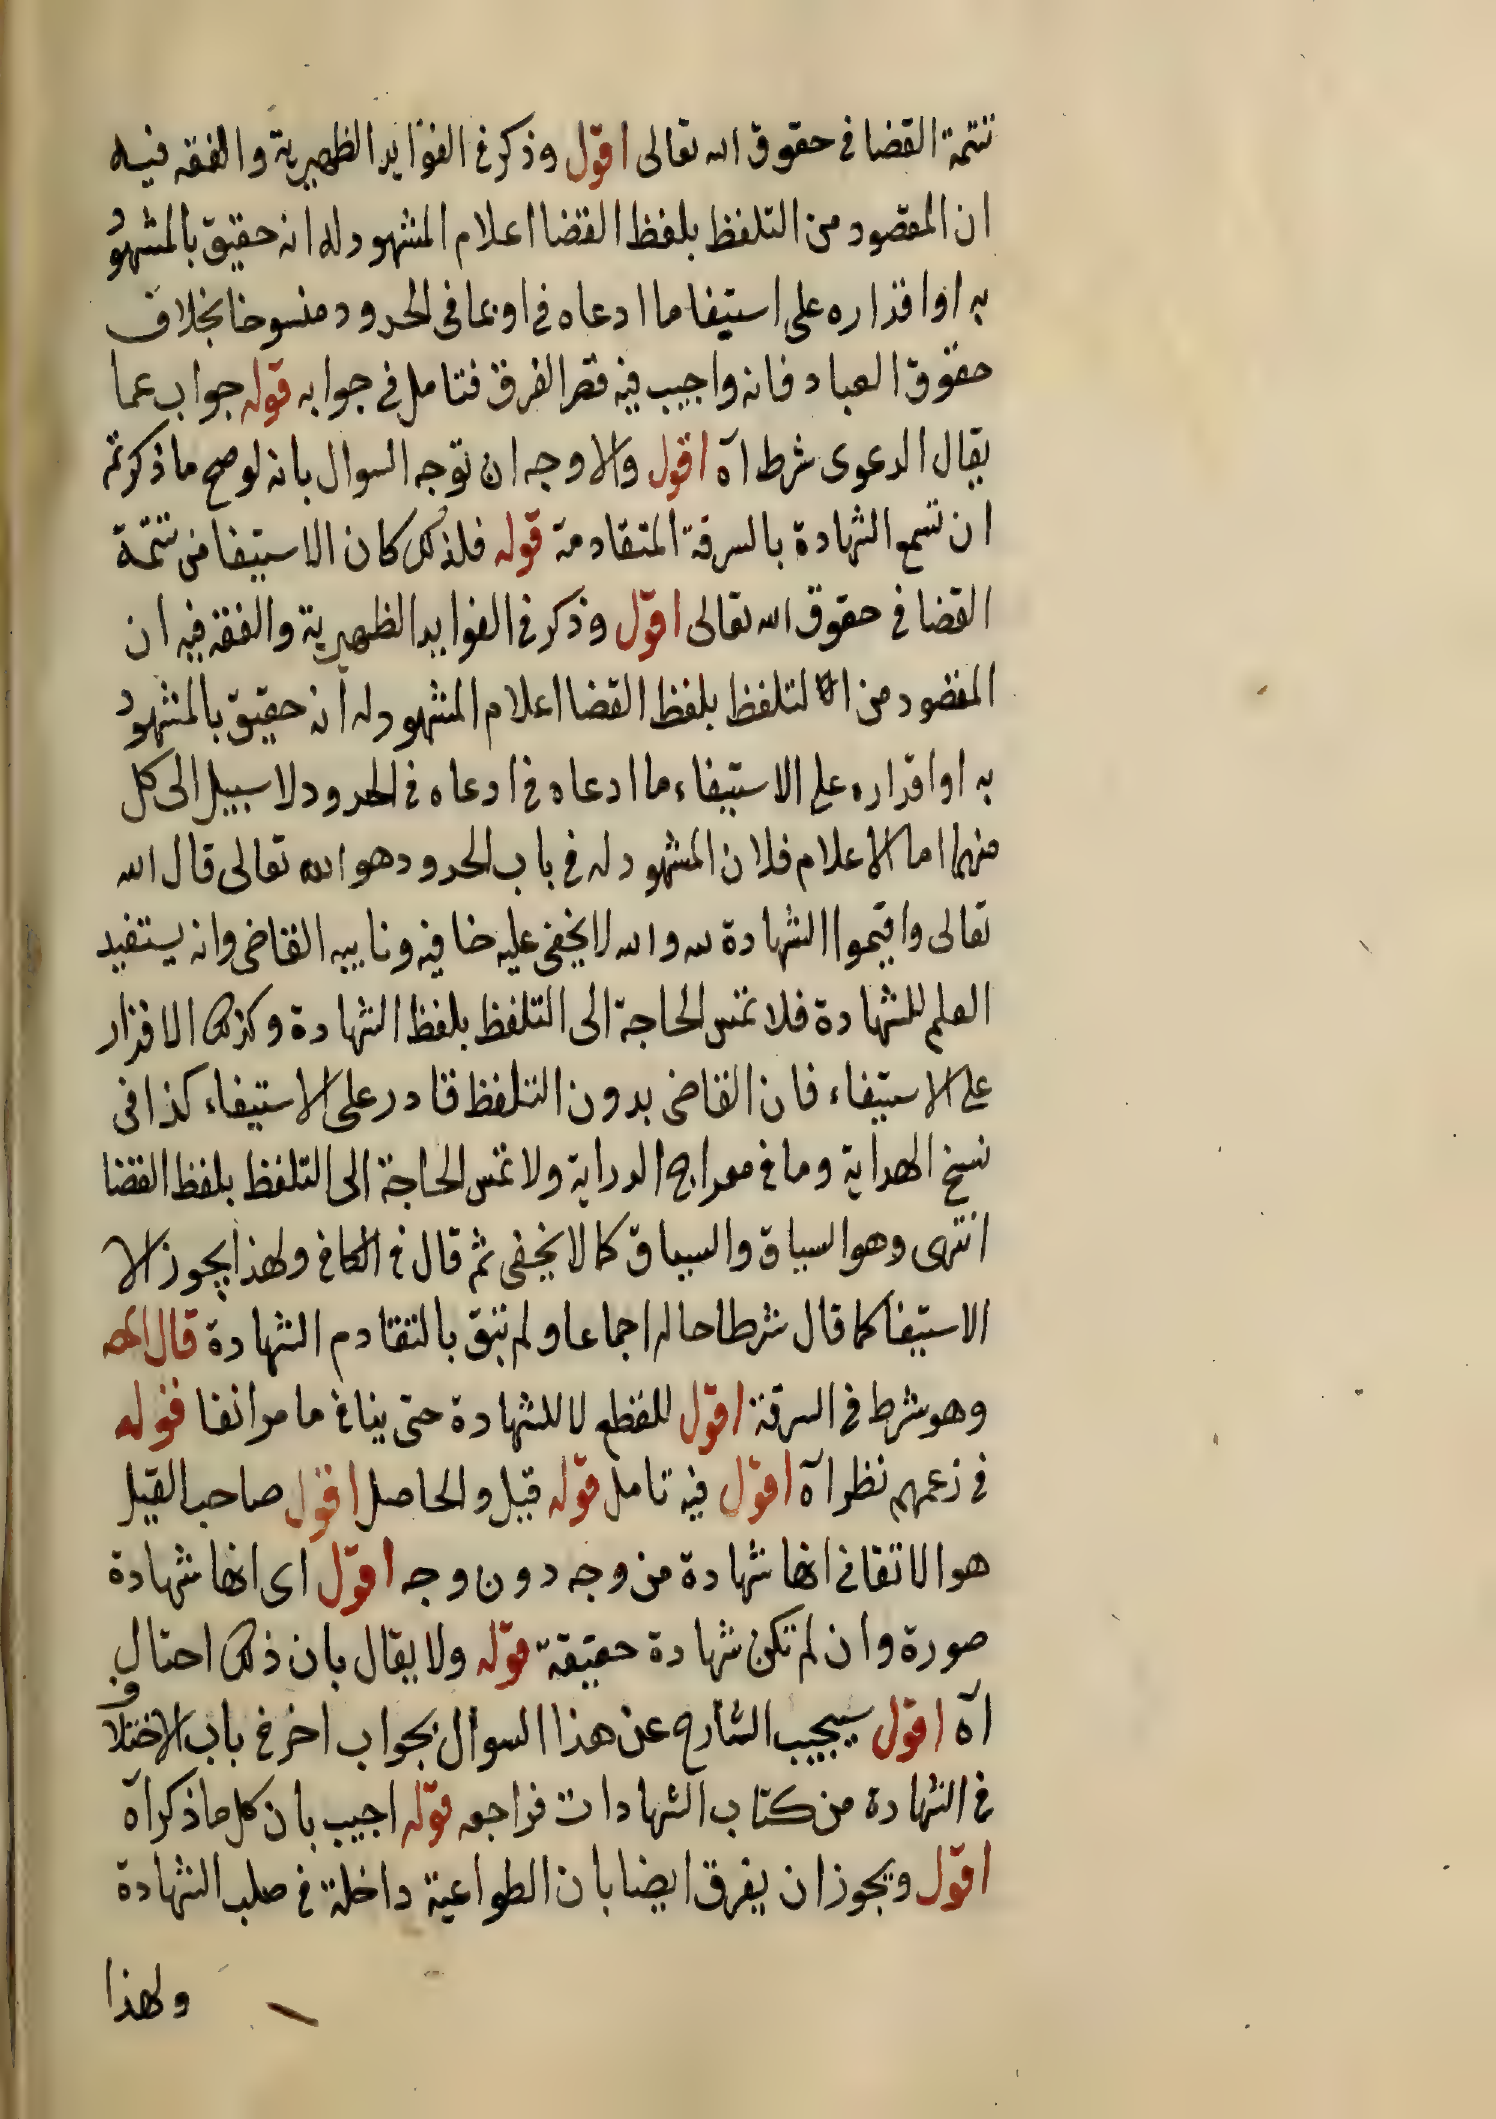 تتمة القضا فى حقوق الله تعالى اقول وذكر فى الفوايد الظهيرية والفقه فيه
ان المقصود من التلفظ بلفظ القضا اعلام المشهود له انه حقيق بالمشهود
به او اقداره على استيفا ما ادعاه فى او بما فى الحدود منسوخا بخلاف
حقوق العباد فانه واجيب فيه فقر الفرق فتامل فى جوابه قوله جواب عما
يقال الدعوى شرط آه اقول والاوجه ان توجه السوال بانه لو صح ما ذكر ثم
ان تسمع الشهادة بالسرقة المتقادمة قوله فلذلك كان الاستيفا من تتمة
القضا فى حقوق الله تعالى اقول وذكر فى الفوايد الظهيرية والفقه فيه ان
المقصود من التلفظ بلفظ القضا اعلام المشهود له انه حقيق بالمشهود
به او اقداره على الاستيفاء ما ادعاه فى ادعاه فى الحدود لا سبيل الى كل
منهما اما الاعلام فلان المشهود له فى باب الحدود هو الله تعالى قال الله
تعالى واقيموا الشهادة لله والله لا يخفى عليه خافيه ونايبه القاضى وانه يستفيد
العلم للشهادة فلا تمس الحاجة الى التلفظ بلفظ الشهادة وكذلك الاقدار
على الاستيفاء فان القاضى بدون التلفظ قادر على الاستيفاء كذا فى
نسخ الهداية وما فى معراج الدراية ولا تمس الحاجة الى التلفظ بلفظ القضا
انتهى وهو السباق والسياق كما لا يخفى ثم قال فى الكافى ولهذا يجوز الا
الاستيفا كما قال شرطا حاله اجماعا ولم تبق بالتقادم الشهادة قال المص
وهو شرط فى السرقة اقول للقطع لا للشهادة حتى ينافى ما مر انفا قوله
فى زعمهم نظر آه اقول فيه تامل قوله قيل والحاصل اقول صاحب القيل
هو الاتقانى انها شهادة من وجه دون وجه اقول اى انها شهادة
صورة وان لم تكن شهادة حقيقة قوله ولا يقال بان ذلك احتال
آه اقول سيجيب الشارح عن هذا السوال بجواب اخر فى باب الاختلاف
فى الشهادة من كتاب الشهادات فراجعه قوله اجيب بان كل ما ذكر آه
اقول ويجوز ان يفرق ايضا بان الطواعية داخلة فى صلب الشهادة
ولهذا